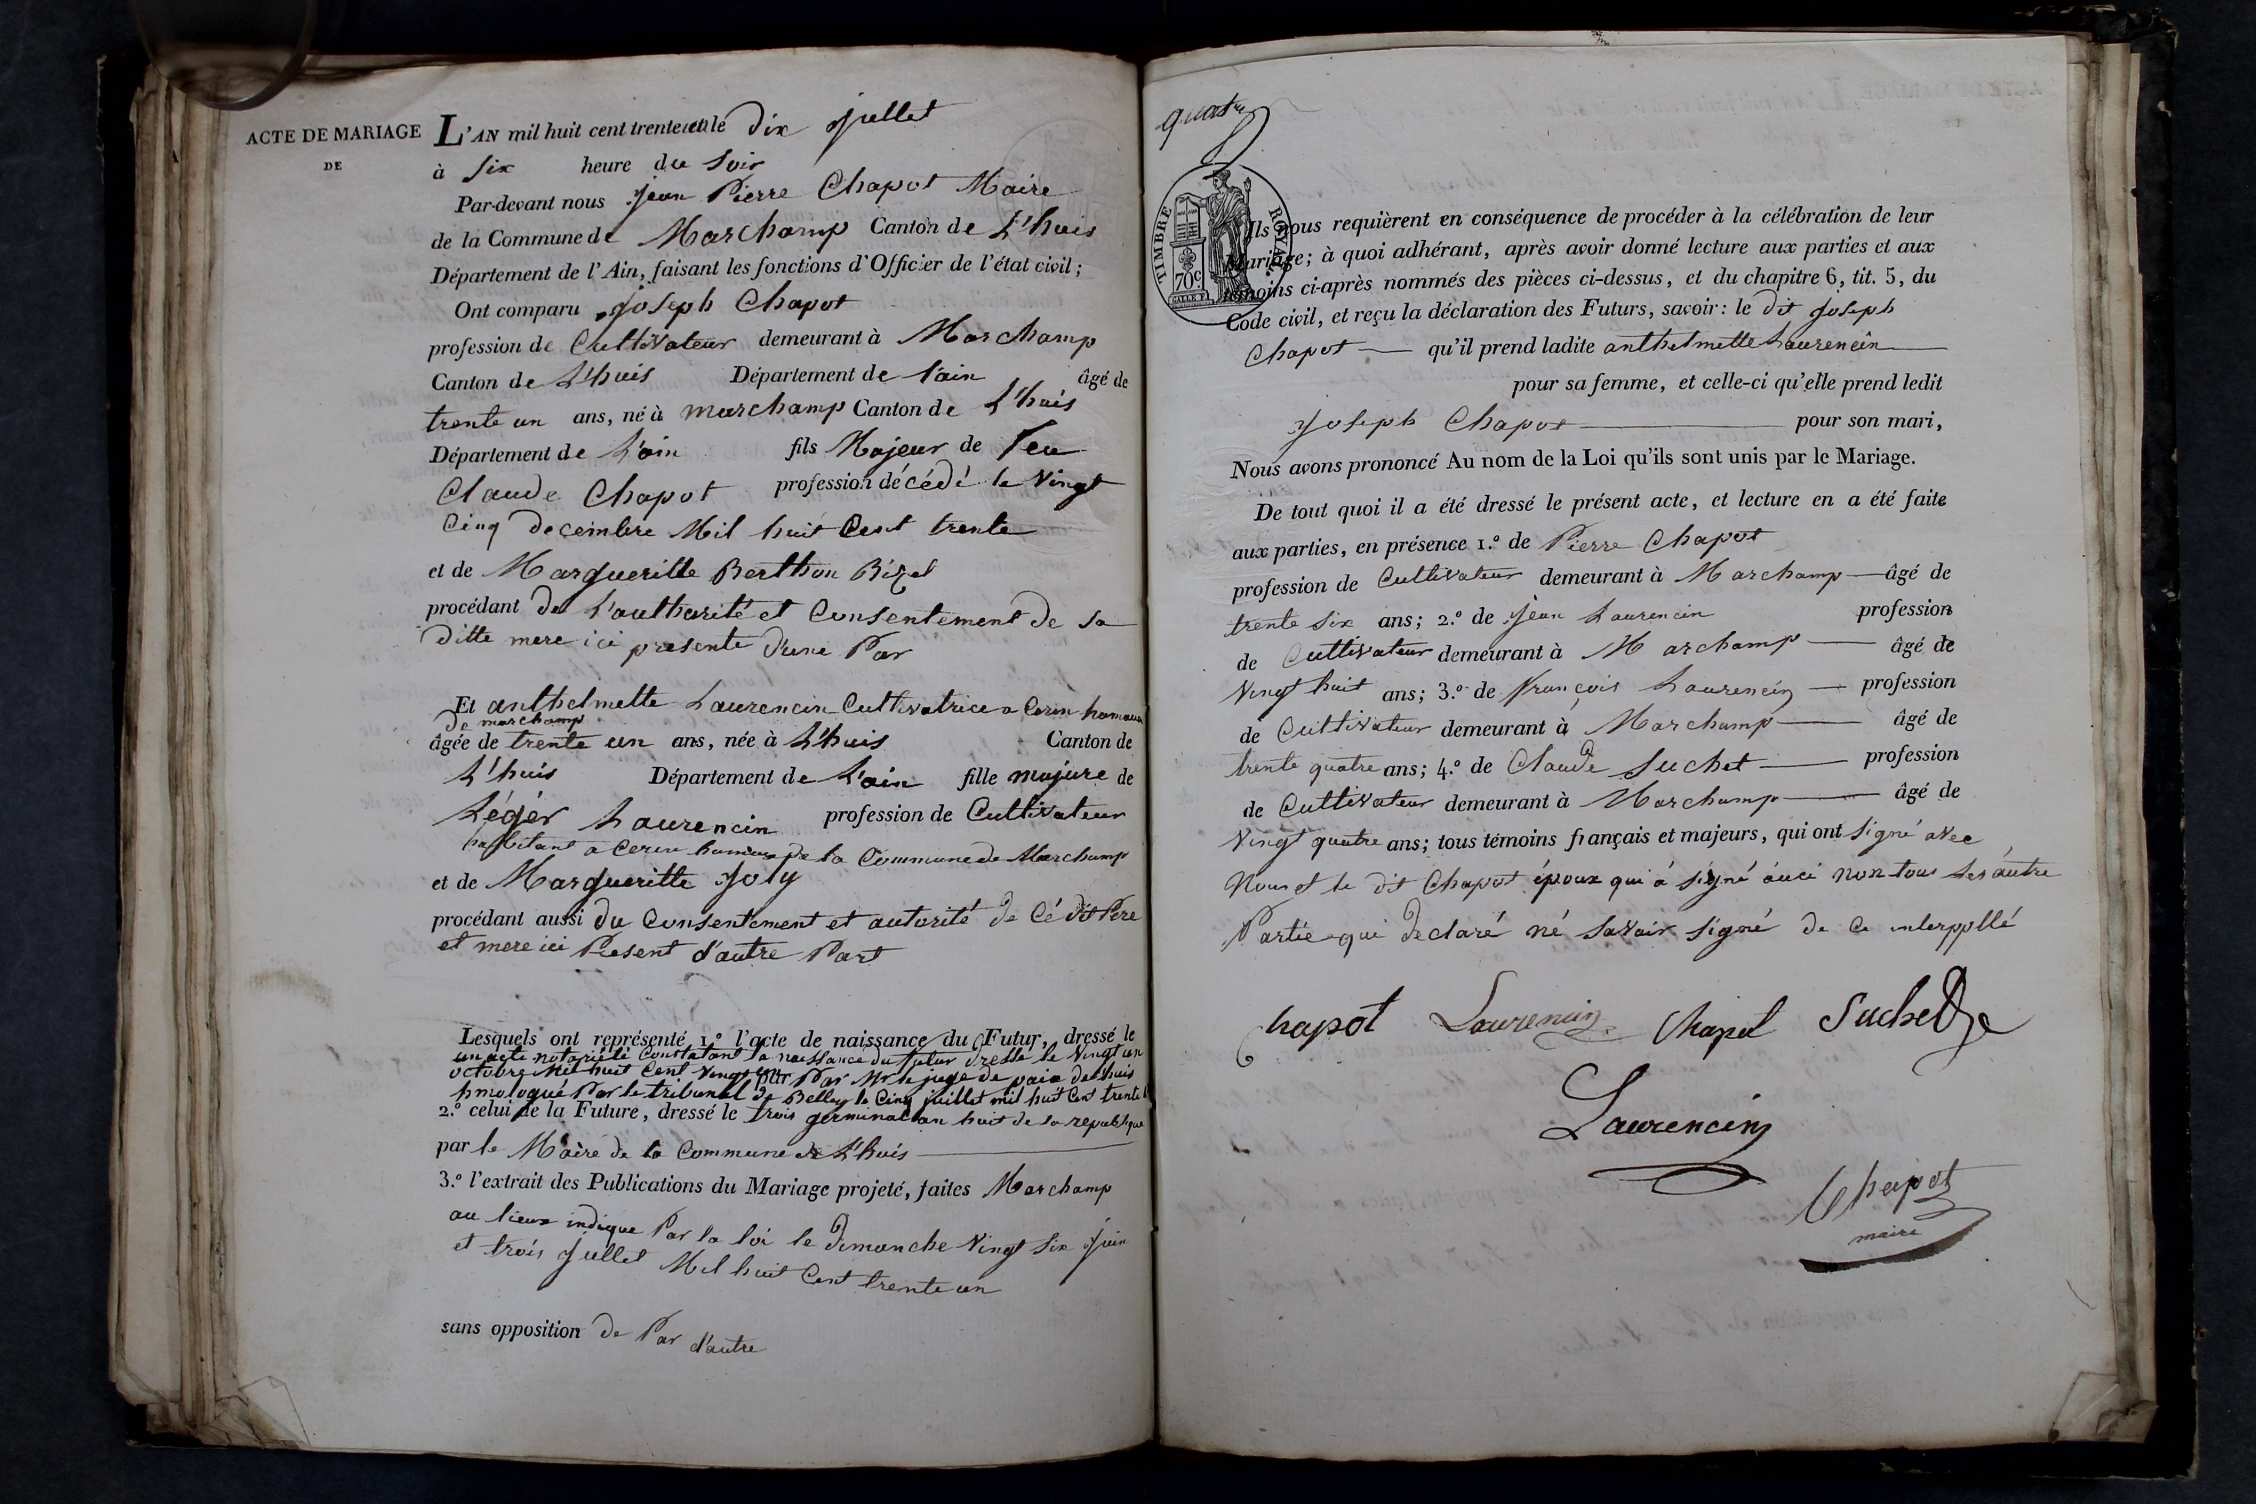 ACTE DE MARIAGE
DE
L'AN mil huit cent trente le dix Jullet
à Six heure du Soir
Par-devant nous Jean Pierre Chapot Maire
de la Commune de Marchamp Canton de L'huis
Département de l'Ain, faisant les fonctions d'Officier de l'état civil;
Ont comparu Joseph Chapot
profession de Cultivateur demeurant à Marchamp
Canton de L'huis Département de l'ain âgé de
trente un ans, né à marchamp Canton de L'huis
Département de L'ain fils Majeur de feu
Claude Chapot profession décédé le Vingt
Cinq decembre Mil huit Cent trente
et de Margueritte Berthon Bizel
procédant de L'autharité et Consentement de sa
ditte mere ici presente d'une Par
Et anthelmette Laurencin Cultivatrice a Cerin hamaux
de marchamp
âgée de trente un ans, née à L'huis Canton de
L'huis Département de L'ain fille majure de
Légér Laurencin profession de Cultivateur
habitant a Cerin hamaux de la Commune de Marchamp
et de Margueritte Joly
procédant aussi du Consentement et autorité de Cé dit Père
et mere ici Present d'autre Part
Lesquels ont représenté 1.º l'acte de naissance du Futur, dressé le
un acte notoriété Constatant la naissance du futur dressé le Vingt un
octobre Mil huit Cent Vingt par Par Mr le juge de paix de L'huis
hmologué Par le tribunal de Belley le Cinq juillet mil huit Cent trente
2.º celui de la Future, dressé le trois germinal an huit de la republique
par le Maire de la Commune de L'huis
3.º l'extrait des Publications du Mariage projeté, faites Marchamp
au lieux indique Par la loi le Dimanche Vingt Six Juin
et trois Jullet Mil huit Cent trente un
sans opposition de Par d'autre
quatre
TIMBRE ROYAL
70c
Ils nous requièrent en conséquence de procéder à la célébration de leur
Mariage; à quoi adhérant, après avoir donné lecture aux parties et aux
témoins ci-après nommés des pièces ci-dessus, et du chapitre 6, tit. 5, du
Code civil, et reçu la déclaration des Futurs, savoir: le dit Joseph
Chapot qu'il prend ladite anthelmette Laurencin
pour sa femme, et celle-ci qu'elle prend ledit
Joseph Chapot pour son mari,
Nous avons prononcé Au nom de la Loi qu'ils sont unis par le Mariage.
De tout quoi il a été dressé le présent acte, et lecture en a été faite
aux parties, en présence 1.º de Pierre Chapot
profession de Cultivateur demeurant à Marchamp âgé de
trente six ans; 2.º de Jean Laurencin profession
de Cultivateur demeurant à Marchamp âgé de
Vingt huit ans; 3.º de François Laurencin profession
de Cultivateur demeurant à Marchamp âgé de
trente quatre ans; 4.º de Claude Suchet profession
de Cultivateur demeurant à Marchamp âgé de
Vingt quatre ans; tous témoins français et majeurs, qui ont signé avec
Nous et le dit Chapot époux qui à signé ausi non tous les autre
Partie qui declaré né savoir signé de ce interpellé
Chapot Laurencin Chapot Suchet
Laurencin
Chapot
maire